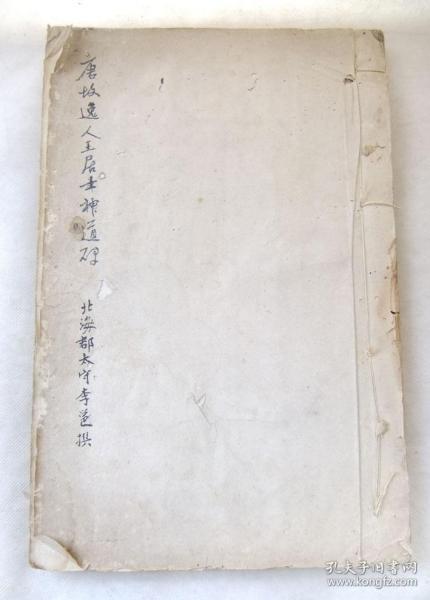 唐故逸人王居士神道碑
北海郡太守李邕撰
孔夫子旧书网
www.kongfz.com